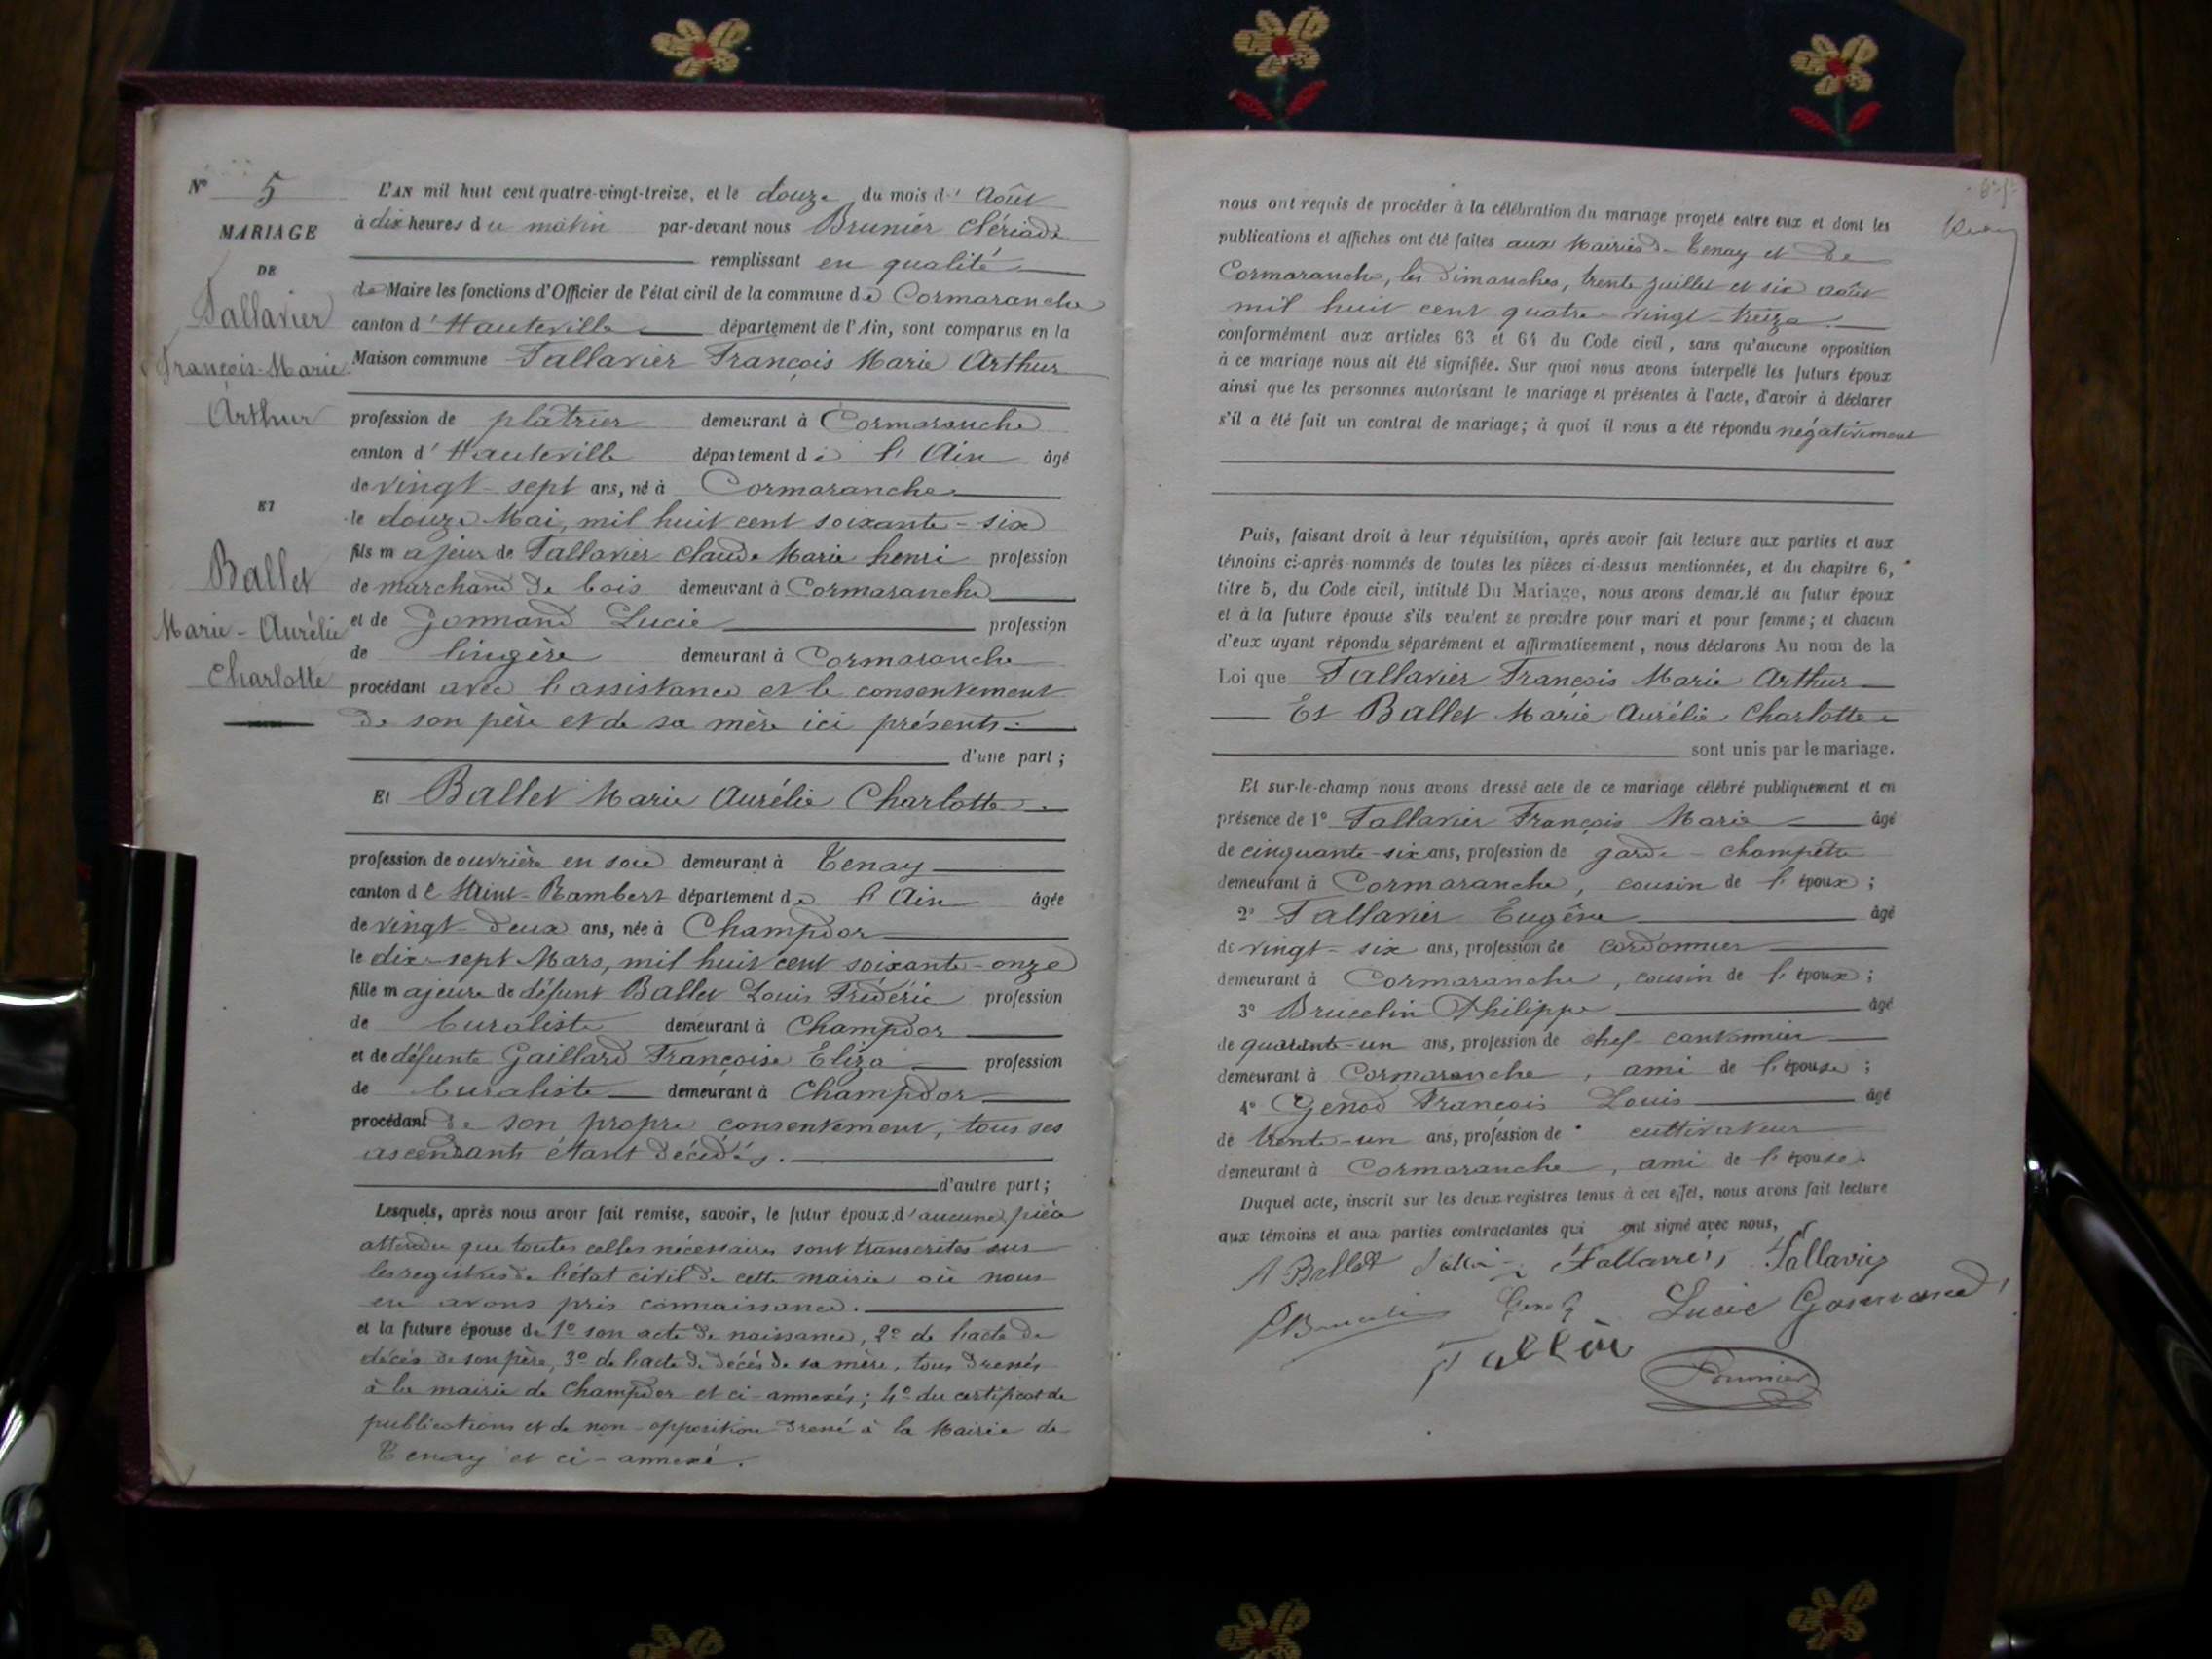 N° 5
MARIAGE
DE
Tallavier
François-Marie
Arthur
ET
Ballet
Marie-Aurélie
Charlotte
L'AN mil huit cent quatre-vingt-treize, et le douze du mois d'Août
à dix heures du matin par-devant nous Brunier Clériade
remplissant en qualité
de Maire les fonctions d'Officier de l'état civil de la commune de Cormaranche
canton d'Hauteville département de l'Ain, sont comparus en la
Maison commune Tallavier François Marie Arthur
profession de plâtrier demeurant à Cormaranche
canton d'Hauteville département de l'Ain âgé
de vingt-sept ans, né à Cormaranche
le douze Mai, mil huit cent soixante-six
fils majeur de Tallavier Claude Marie henri profession
de marchand de bois demeurant à Cormaranche
et de Gonnand Lucie profession
de lingère demeurant à Cormaranche
procédant avec l'assistance et le consentement
de son père et de sa mère ici présents.
d'une part;
Et Ballet Marie Aurélie Charlotte
profession de ouvrière en soie demeurant à Tenay
canton de Saint-Rambert département de l'Ain âgée
de vingt-deux ans, née à Champdor
le dix-sept Mars, mil huit cent soixante-onze
fille majeure de défunt Ballet Louis Frédéric profession
de buraliste demeurant à Champdor
et de défunte Gaillard Françoise Eliza profession
de buraliste demeurant à Champdor
procédant de son propre consentement, tous ses
ascendants étant décédés.
d'autre part;
Lesquels, après nous avoir fait remise, savoir, le futur époux d'aucune pièce
attendu que toutes celles nécessaires sont transcrites sur
les registres de l'état civil de cette mairie où nous
en avons pris connaissance.
et la future épouse de 1° son acte de naissance, 2° de l'acte de
décès de son père, 3° de l'acte de décès de sa mère, tous dressés
à la mairie de Champdor et ci-annexés; 4° du certificat de
publications et de non-opposition dressé à la Mairie de
Tenay et ci-annexé.
nous ont requis de procéder à la célébration du mariage projeté entre eux et dont les
publications et affiches ont été faites aux Mairies de Tenay et de
Cormaranche, les Dimanches, trente juillet et six août
mil huit cent quatre-vingt-treize.
conformément aux articles 63 et 64 du Code civil, sans qu'aucune opposition
à ce mariage nous ait été signifiée. Sur quoi nous avons interpellé les futurs époux
ainsi que les personnes autorisant le mariage et présentes à l'acte, d'avoir à déclarer
s'il a été fait un contrat de mariage; à quoi il nous a été répondu négativement
Puis, faisant droit à leur réquisition, après avoir fait lecture aux parties et aux
témoins ci-après nommés de toutes les pièces ci-dessus mentionnées, et du chapitre 6,
titre 5, du Code civil, intitulé Du Mariage, nous avons demandé au futur époux
et à la future épouse s'ils veulent se prendre pour mari et pour femme; et chacun
d'eux ayant répondu séparément et affirmativement, nous déclarons Au nom de la
Loi que Tallavier François Marie Arthur
Et Ballet Marie Aurélie Charlotte
sont unis par le mariage.
Et sur-le-champ nous avons dressé acte de ce mariage célébré publiquement et en
présence de 1° Tallavier François Marie âgé
de cinquante-six ans, profession de garde-champêtre
demeurant à Cormaranche, cousin de l'époux;
2° Tallavier Eugène âgé
de vingt-six ans, profession de cordonnier
demeurant à Cormaranche, cousin de l'époux;
3° Brucelin Philippe âgé
de quarante-un ans, profession de chef-cantonnier
demeurant à Cormaranche, ami de l'épouse;
4° Genod François Louis âgé
de trente-un ans, profession de cultivateur
demeurant à Cormaranche, ami de l'épouse.
Duquel acte, inscrit sur les deux registres tenus à cet effet, nous avons fait lecture
aux témoins et aux parties contractantes qui ont signé avec nous,
A Ballet Tallavier Tallavier
Genod Lucie Gonnand